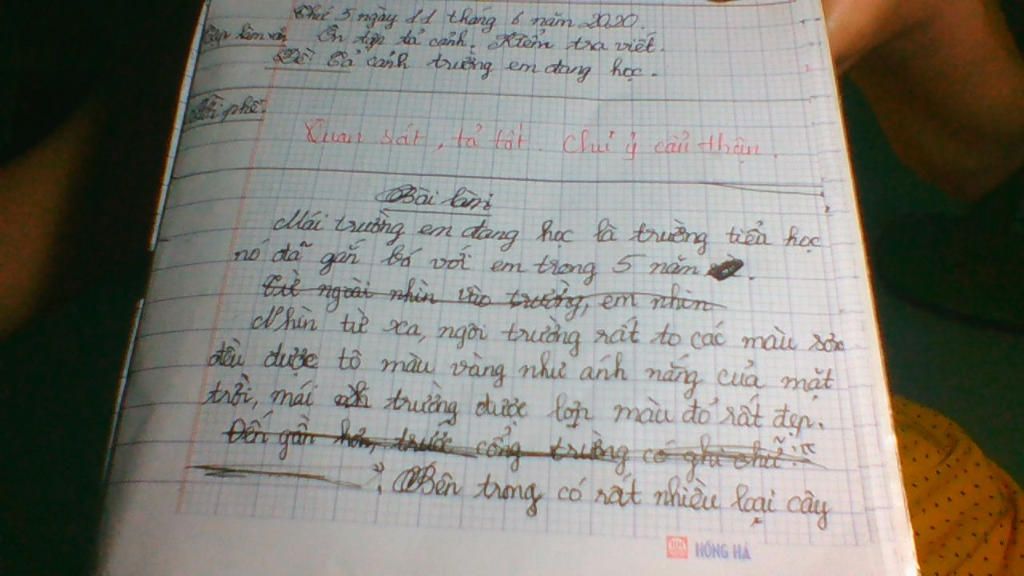 Thứ 5 ngày 11 tháng 6 năm 2020.
Tập làm văn Ôn tập tả cảnh. Kiểm tra viết.
Đề: Tả cảnh trường em đang học.
Lời phê:
Quan sát, tả tốt. Chú ý cẩn thận.
Bài làm
Mái trường em đang học là trường tiểu học
nó đã gắn bó với em trong 5 năm.
Từ ngoài nhìn vào trường, em nhìn
Nhìn từ xa, ngôi trường rất to các màu sơn
đều được tô màu vàng như ánh nắng của mặt
trời, mái trường được lợp màu đỏ rất đẹp.
Đến gần hơn, trước cổng trường có ghi chữ: "
Bên trong có rất nhiều loại cây
HỒNG HÀ